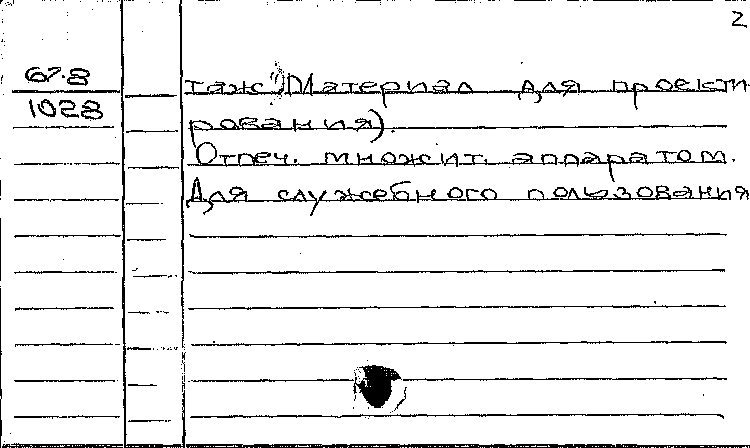 2
67.8
1028
таж) Материал для проекти
рования).
Отпеч. множит. аппаратом.
Для служебного пользования